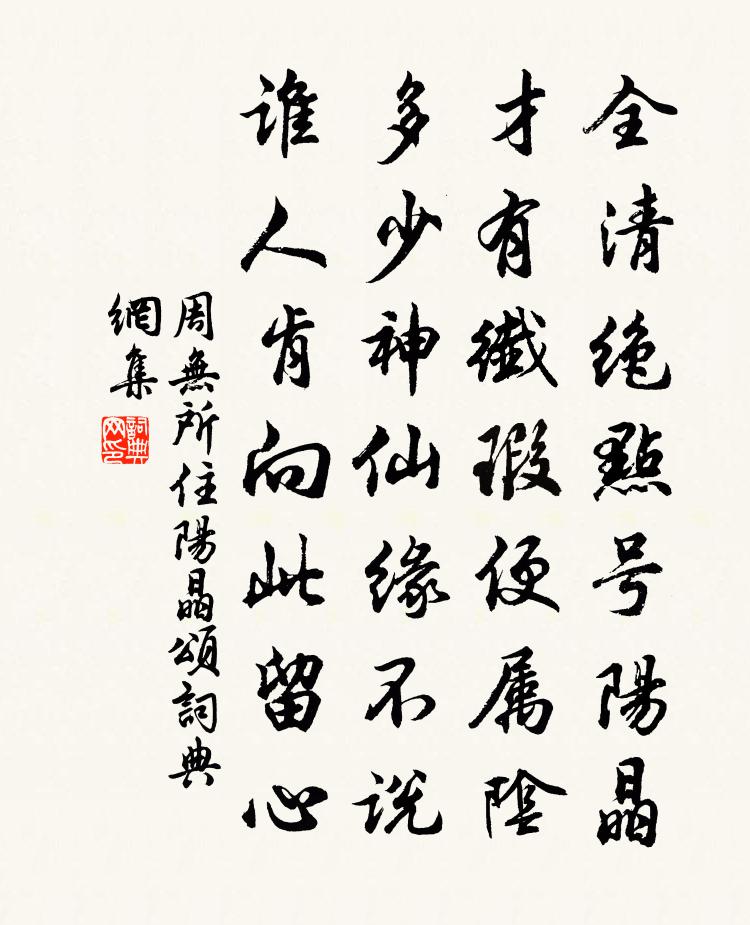 全清绝點号陽晶
才有纖瑕便属陰
多少神仙缘不说
谁人肯向此留心
周無所住陽晶頌詞典
網集
詞典
网印